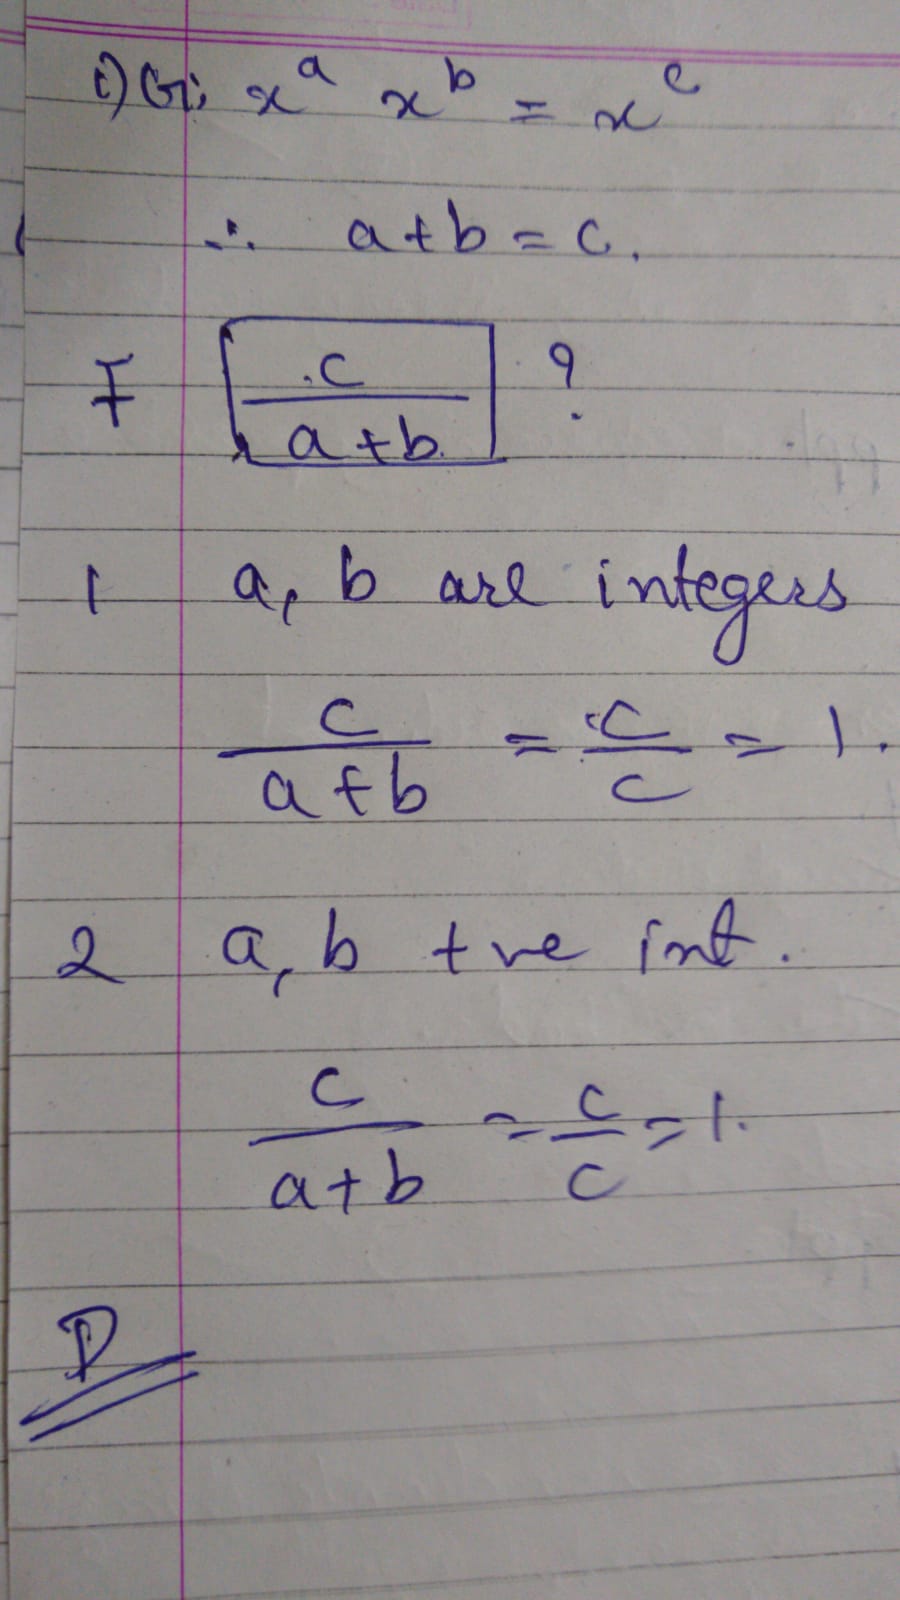 i) Gi; x^a x^b = x^c
∴ a+b = c.
F c/(a+b) ?
1 a, b are integers
c/(a+b) = c/c = 1.
2 a, b +ve int.
c/(a+b) = c/c = 1.
D